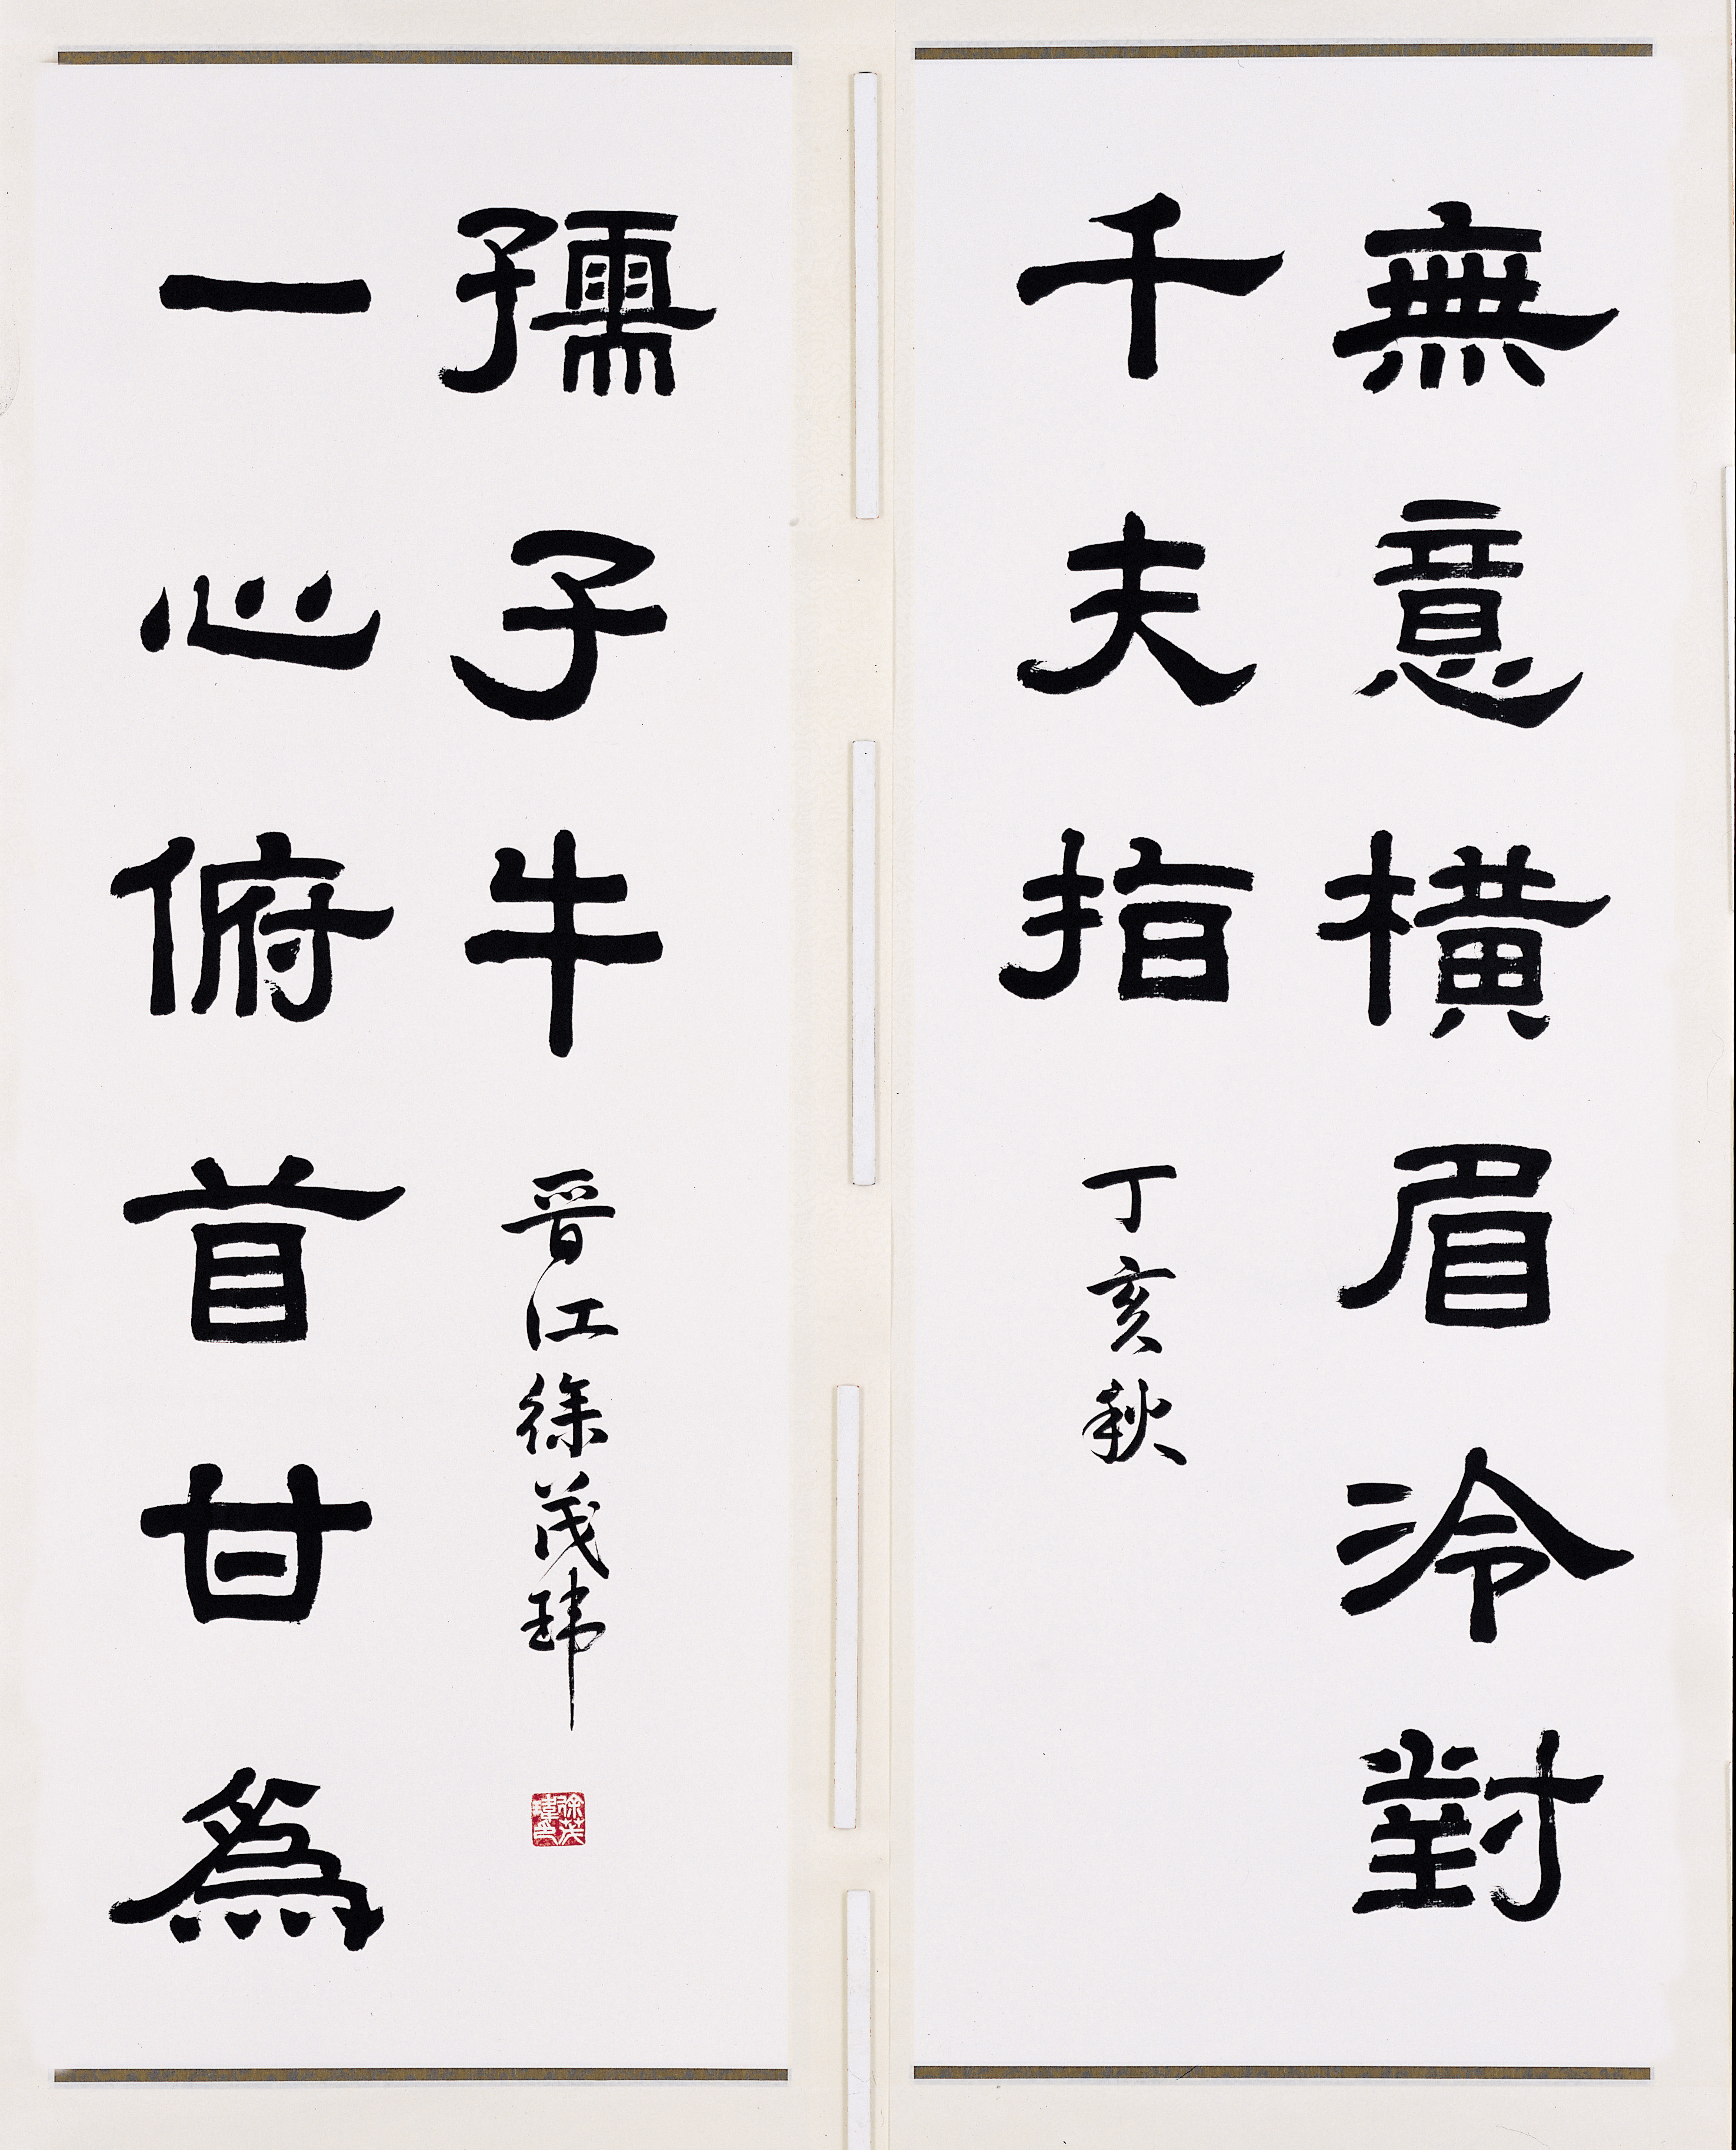 無意橫眉冷對
千夫指
丁亥秋
一心俯首甘爲
孺子牛
晋江徐茂瑋
徐茂瑋印